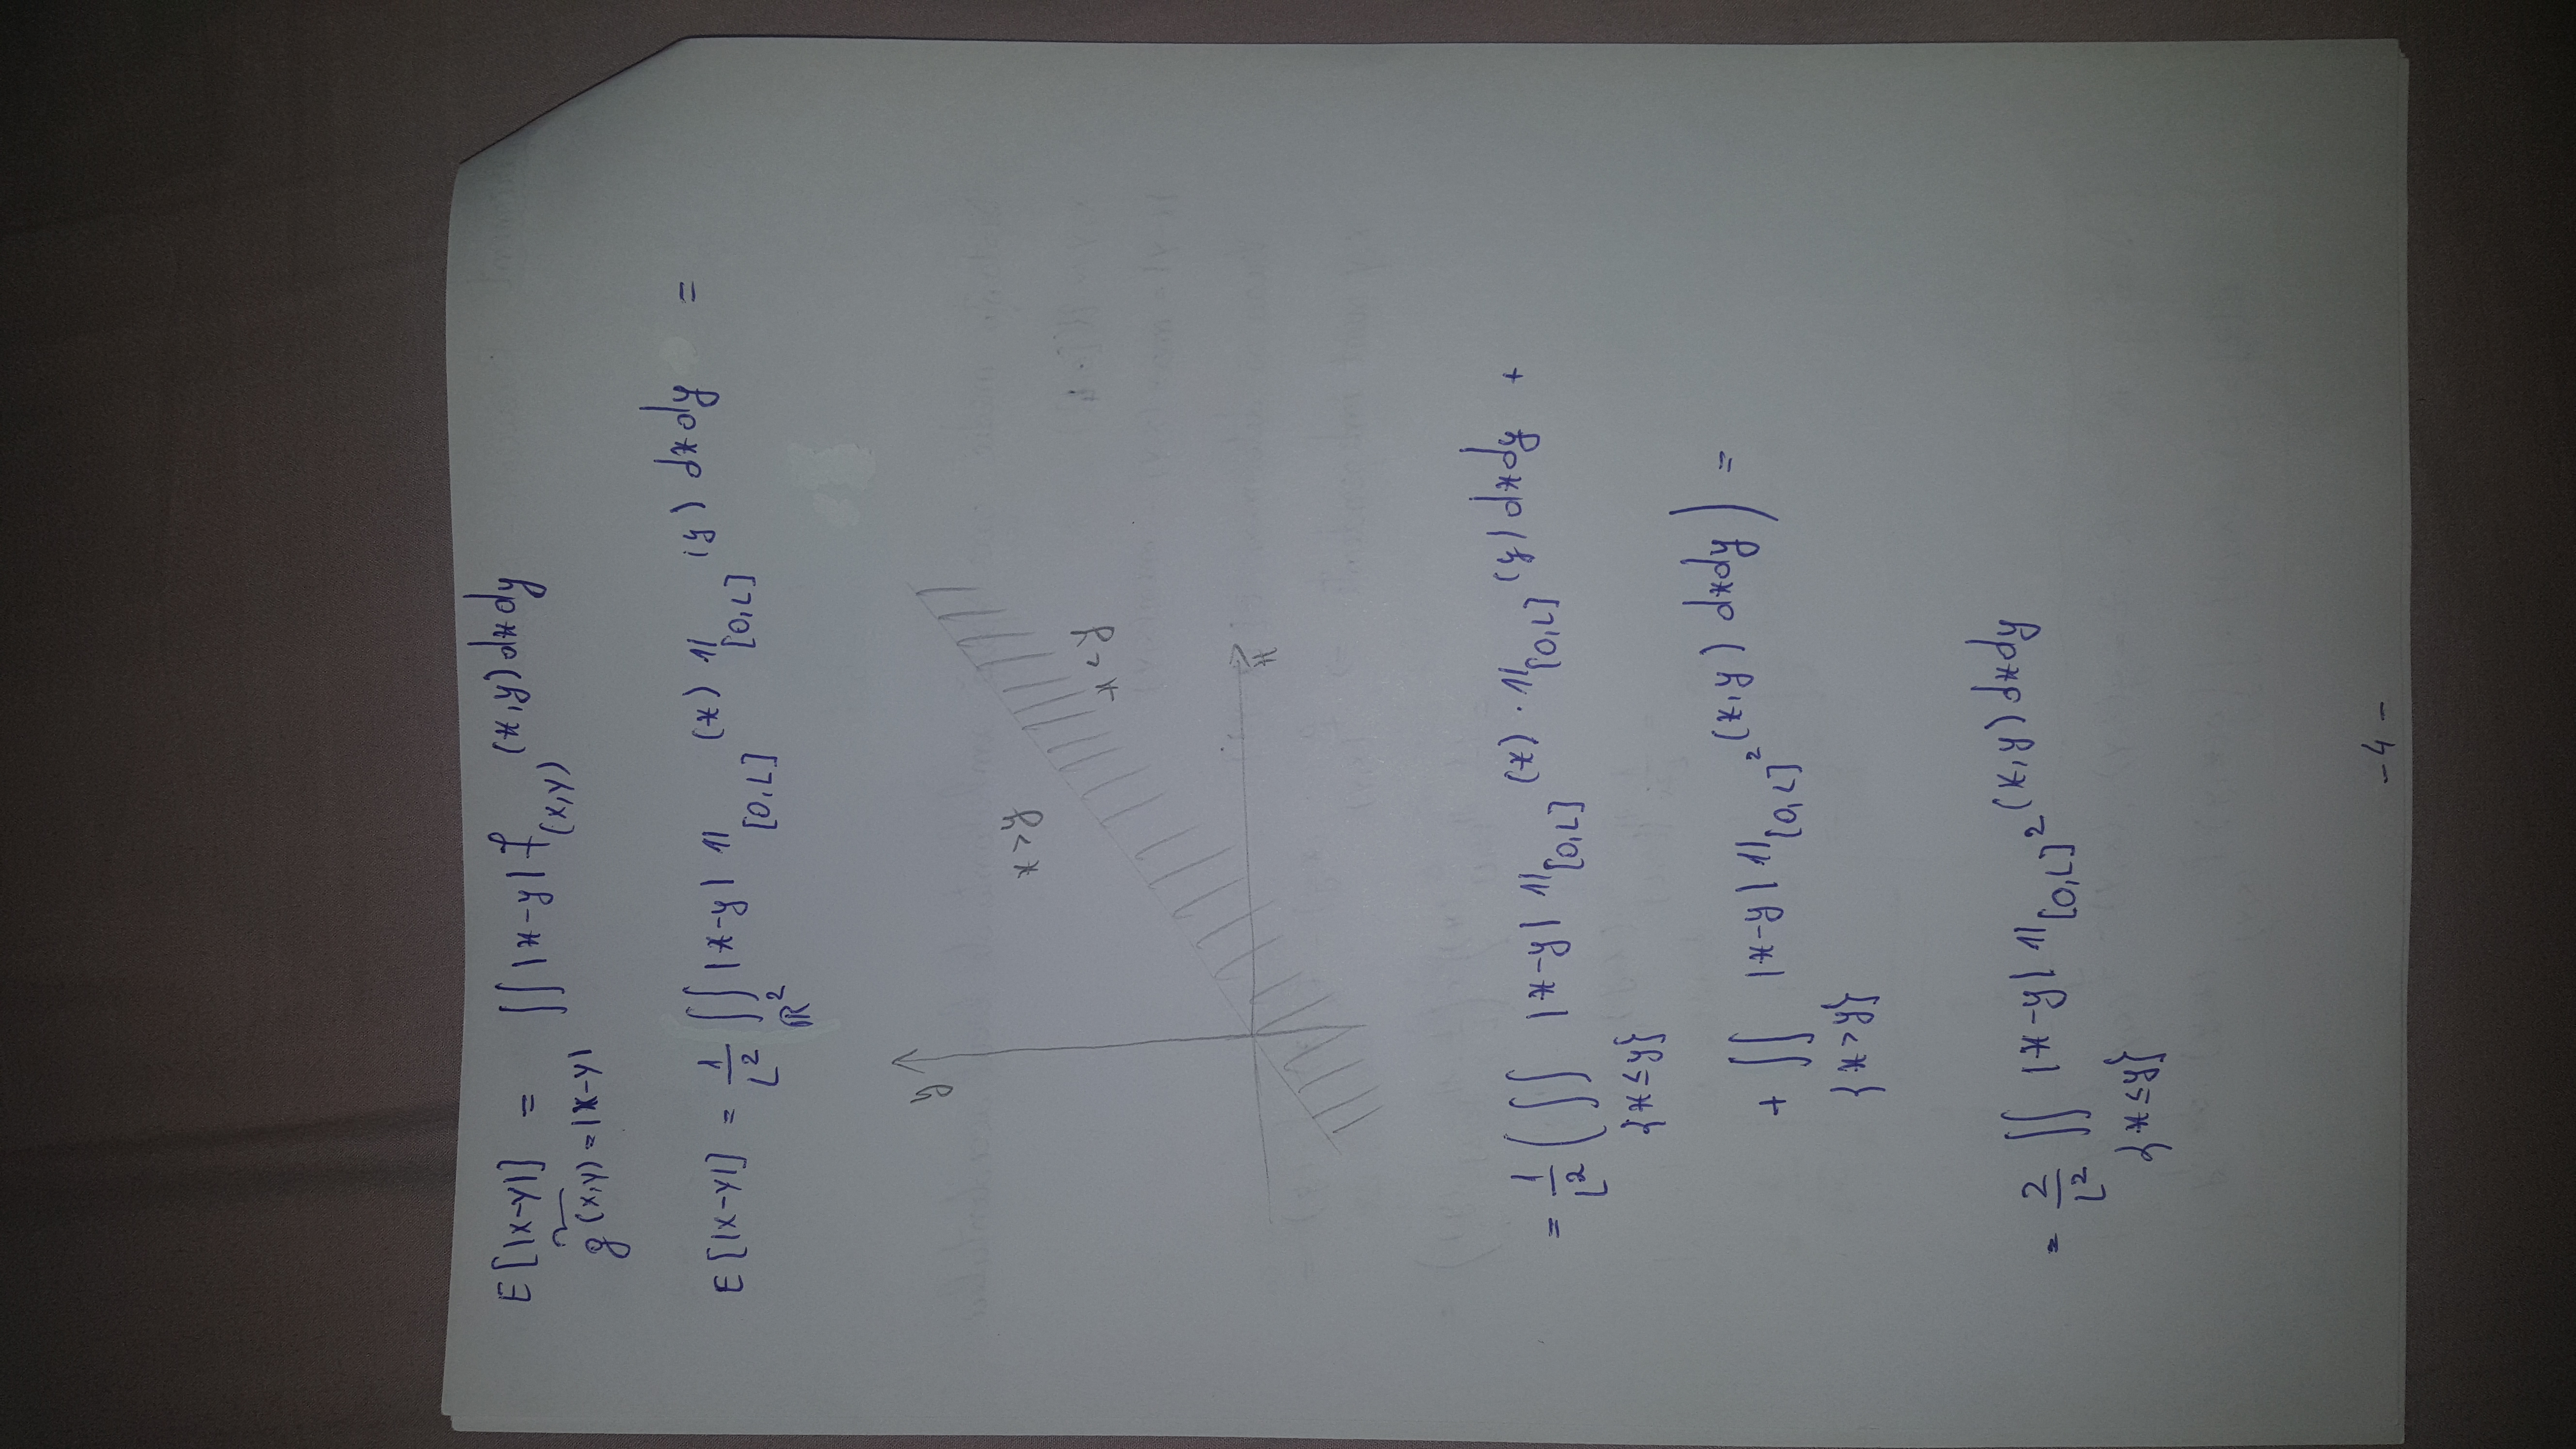 E[|X-Y|] = ∬ |x-y| f_(X,Y) (x,y) dx dy
g(X,Y) = |X-Y|
E[|X-Y|] = 1/L² ∬_ℝ² |x-y| 𝟙_[0,L] (x) 𝟙_[0,L] (y) dx dy =
y
x > y
x < y
x
= 1/L² ( ∬_{x≤y} |x-y| 𝟙_[0,L] (x) · 𝟙_[0,L] (y) dx dy +
+ ∬_{x>y} |x-y| 𝟙_[0,L]² (x,y) dx dy ) =
= 2/L² ∬_{x≤y} |x-y| 𝟙_[0,L]² (x,y) dx dy
- 4 -